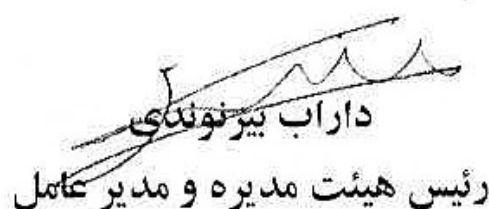 داراب بیرنوندی
رئیس هیئت مدیره و مدیر عامل